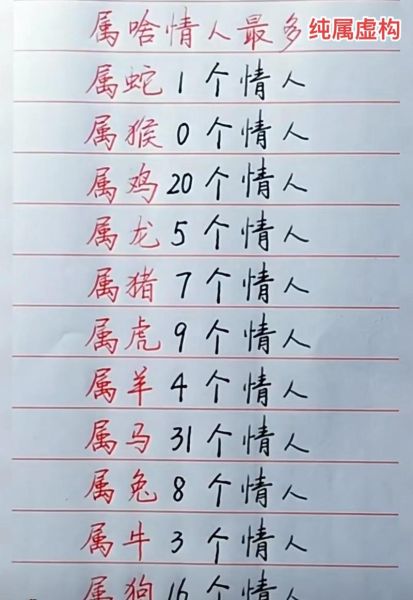 属啥情人最多 纯属虚构
属蛇1个情人
属猴0个情人
属鸡20个情人
属龙5个情人
属猪7个情人
属虎9个情人
属羊4个情人
属马31个情人
属兔8个情人
属牛3个情人
属狗16个情人